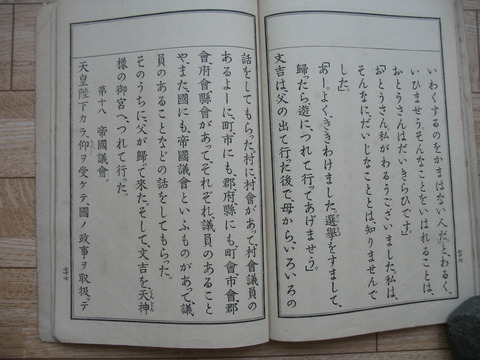 いわるくするのをかまはない人だ」とわるく、
いひませう。そんなことをいはれることは、
おとうさんは、だいきらひです」
「おとうさん、私がわるうございました。私は、
そんなに、だいじなことゝは、知りませんで
した」
「あゝ、よくききわけました。選擧をすまして、
歸ったら、遊につれて行ってあげませう」
文吉は、父の出て行った後で、母から、いろいろの
話をしてもらった。村に、村會があって、村會議員の
あるよーに、町市にも、郡府縣にも、町會市會郡
會府會縣會があって、それぞれ、議員のあること
や、また、國にも、帝國議會といふものがあって、議
員のあることなどの話をしてもらった。
そのうちに、父が歸て來た。そして、文吉を、天神
樣の御宮へ、つれて行った。
第十八 帝國議會。
天皇陛下カラ、仰ヲ受ケテ、國ノ政事ヲ取扱ッテ